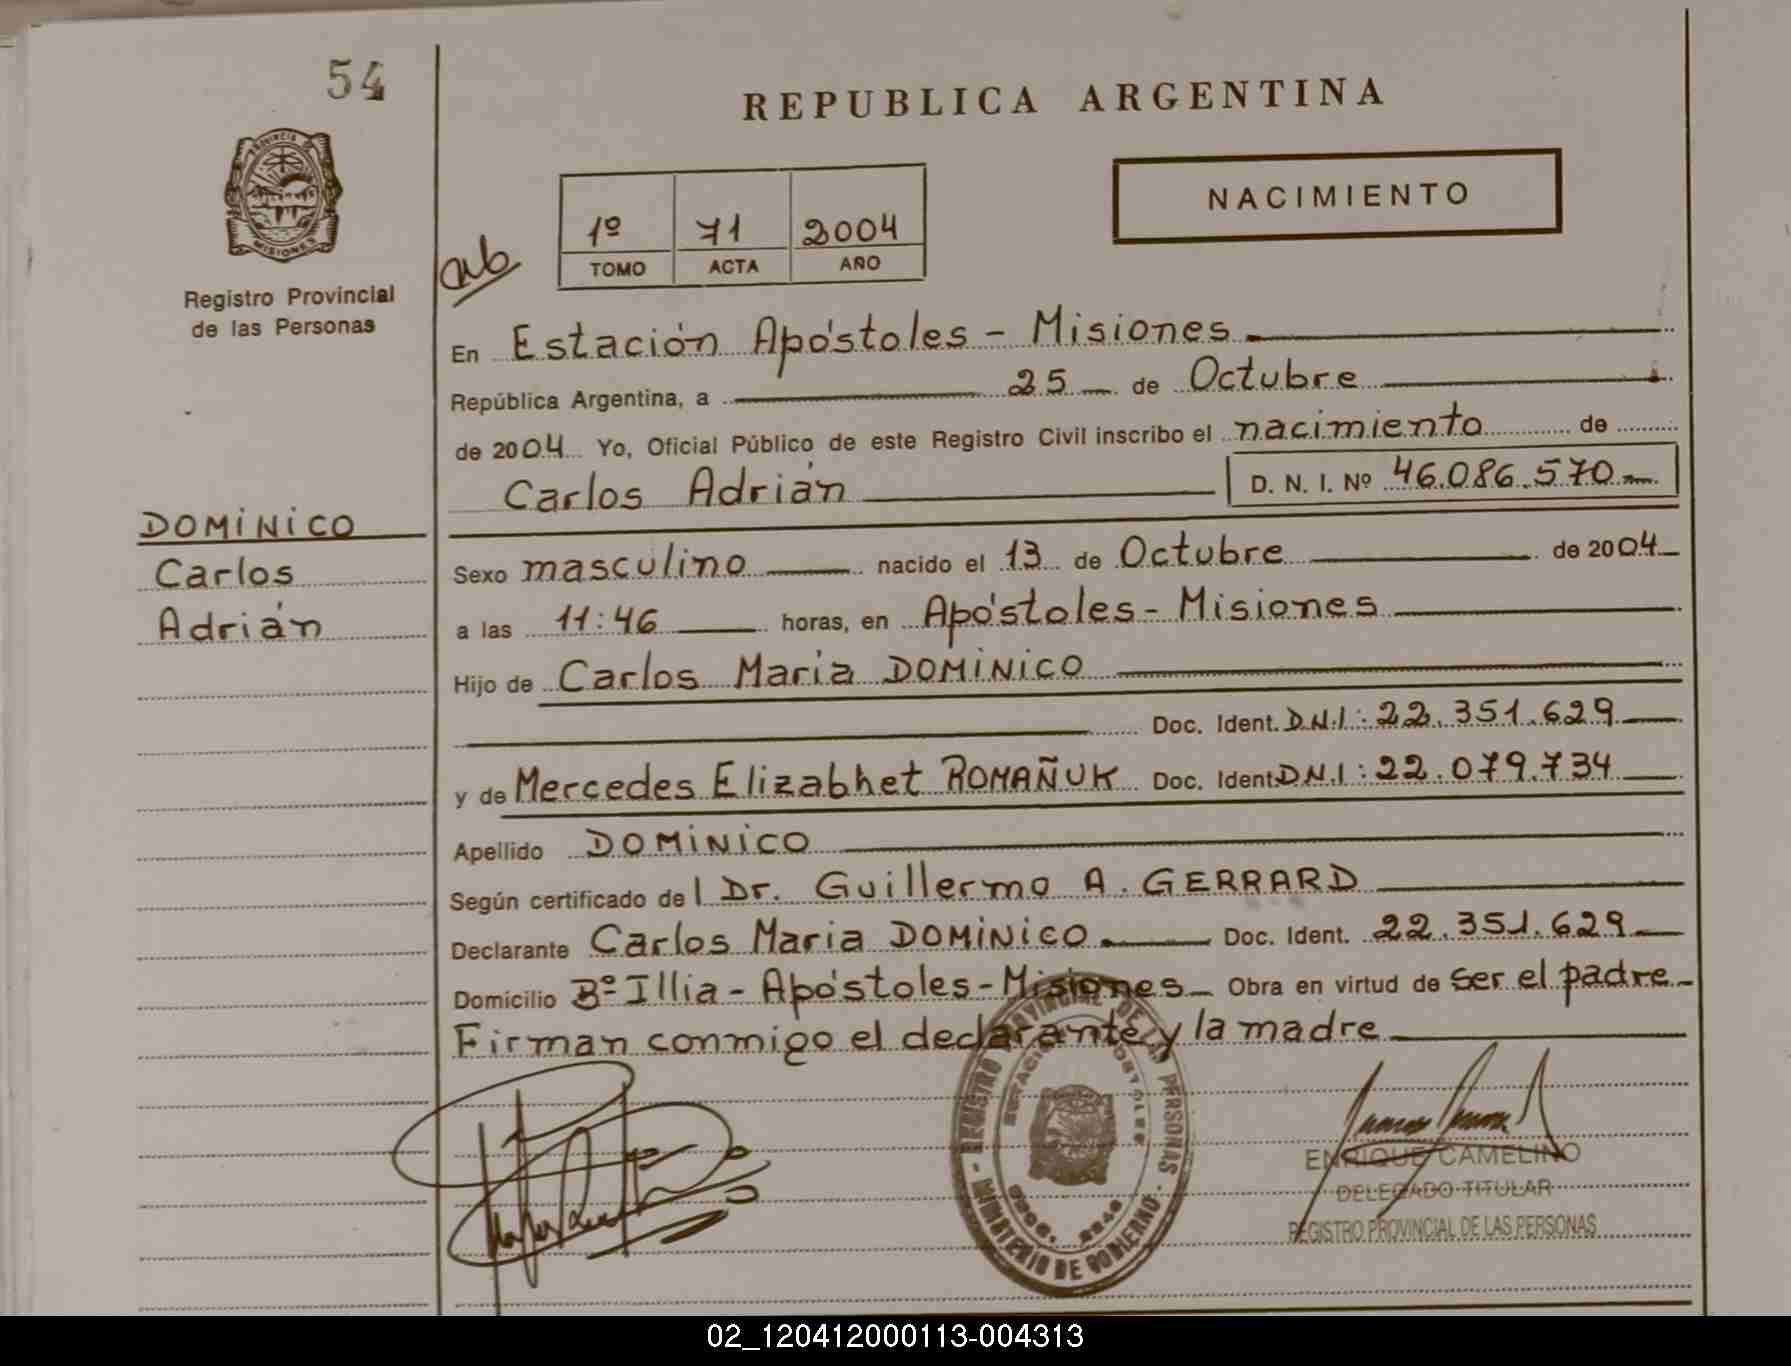 54
REPUBLICA ARGENTINA
PROVINCIA DE
MISIONES
Registro Provincial
de las Personas
1º 71 2004
TOMO ACTA AÑO
NACIMIENTO
En Estación Apóstoles - Misiones
República Argentina, a 25 de Octubre
de 2004 Yo, Oficial Público de este Registro Civil inscribo el nacimiento de
Carlos Adrián D. N. I. Nº 46.086.570
DOMINICO
Carlos
Adrián
Sexo masculino nacido el 13 de Octubre de 2004
a las 11:46 horas, en Apóstoles - Misiones
Hijo de Carlos Maria DOMINICO
Doc. Ident. D.N.I: 22.351.629
y de Mercedes Elizabhet ROMAÑUK Doc. Ident. D.N.I: 22.079.734
Apellido DOMINICO
Según certificado del Dr. Guillermo A. GERRARD
Declarante Carlos Maria DOMINICO Doc. Ident. 22.351.629
Domicilio Bº Illia - Apóstoles - Misiones Obra en virtud de ser el padre
Firman conmigo el declarante y la madre
REGISTRO PROVINCIAL DE LAS PERSONAS - MINISTERIO DE GOBIERNO
ENRIQUE CAMELINO
DELEGADO TITULAR
REGISTRO PROVINCIAL DE LAS PERSONAS
02_120412000113-004313